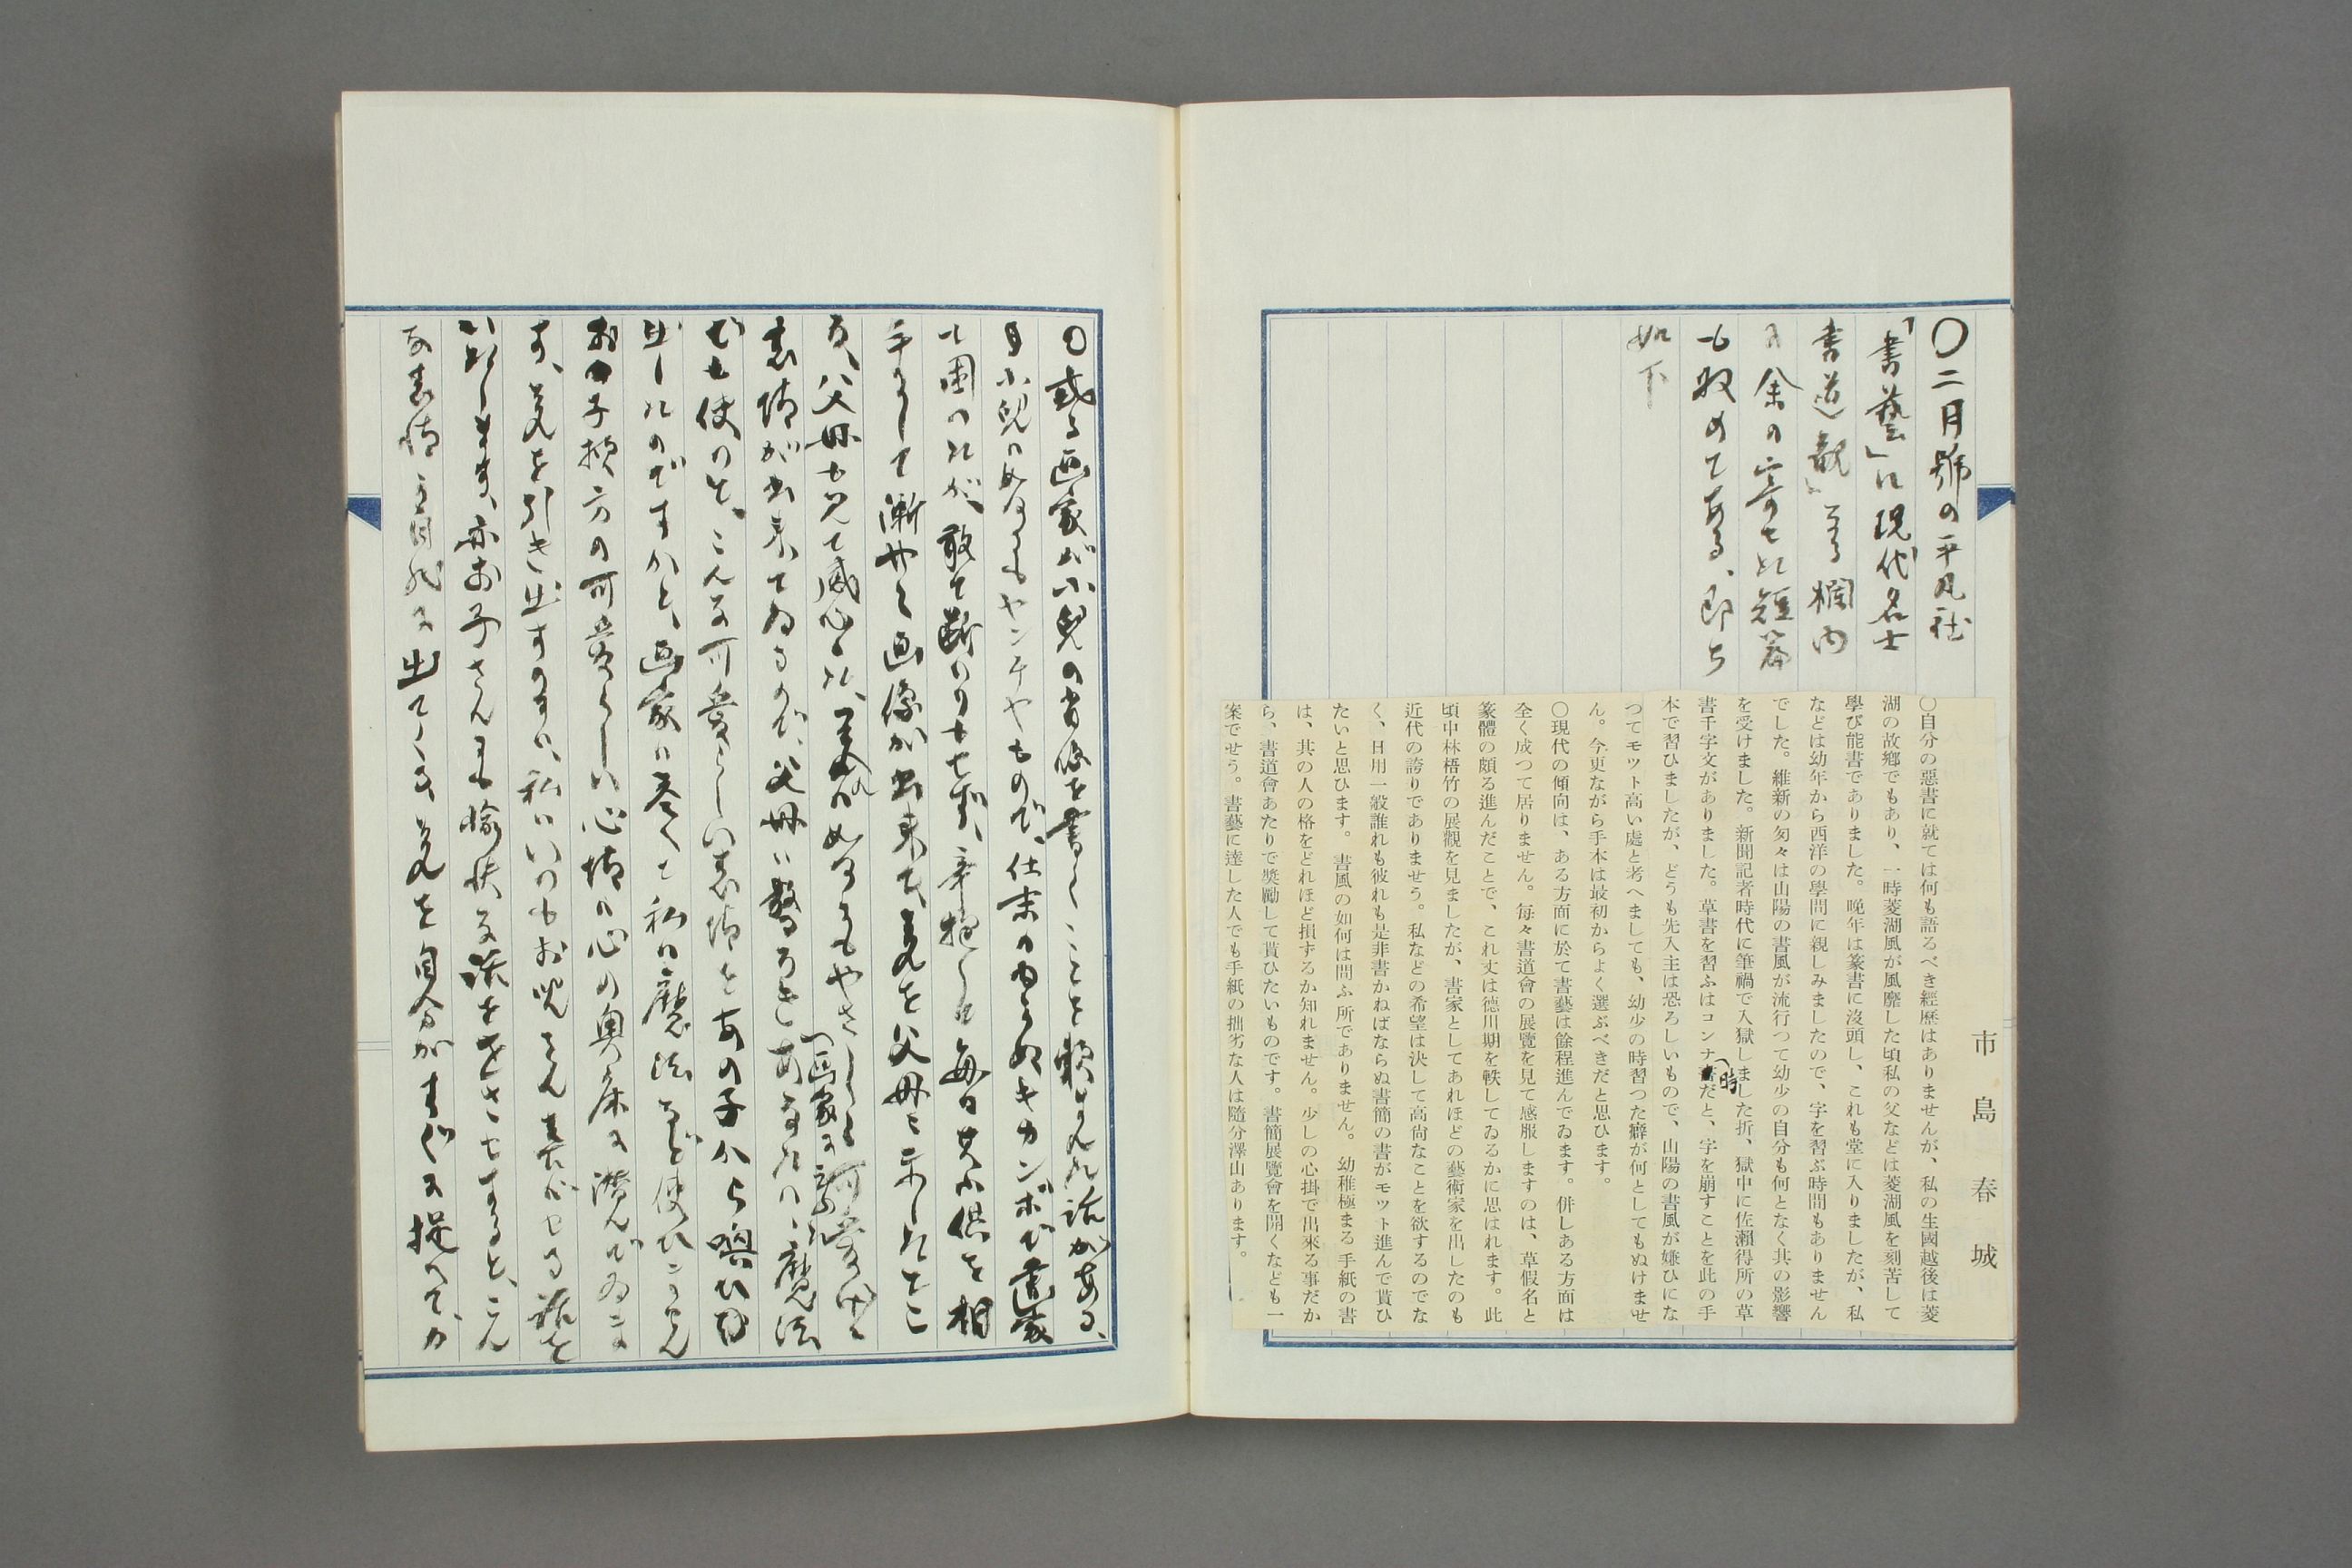 〇二月號の平凡社
「書藝」に現代名士
書道觀」なる欄内
に余の寄せた短篇
も收めてある、即ち
如下
市島春城
〇自分の惡書に就ては何も語るべき經歷はありませんが、私の生國越後は菱
湖の故鄕でもあり、一時菱湖風が風靡した頃私の父などは菱湖風を刻苦して
學び能書でありました。晩年は篆書に沒頭し、これも堂に入りましたが、私
などは幼年から西洋の學問に親しみましたので、字を習ぶ時間もありません
でした。維新の匆々は山陽の書風が流行つて幼少の自分も何となく其の影響
を受けました。新聞記者時代に筆禍で入獄しました折、獄中に佐瀨得所の草
書千字文がありました。草書を習ふはコンナ時だと、字を崩すことを此の手
本で習ひましたが、どうも先入主は恐ろしいもので、山陽の書風が嫌ひにな
つてモツト高い處と考へましても、幼少の時習つた癖が何としてもぬけませ
ん。今更ながら手本は最初からよく選ぶべきだと思ひます。
〇現代の傾向は、ある方面に於て書藝は餘程進んでゐます。併しある方面は
全く成つて居りません。每々書道會の展覽を見て感服しますのは、草假名と
篆體の頗る進んだことで、これ丈は德川期を軼してゐるかに思はれます。此
頃中林梧竹の展觀を見ましたが、書家としてあれほどの藝術家を出したのも
近代の誇りでありませう。私などの希望は決して高尙なことを欲するのでな
く、日用一般誰れも彼れも是非書かねばならぬ書簡の書がモツト進んで貰ひ
たいと思ひます。書風の如何は問ふ所でありません。幼稚極まる手紙の書
は、其の人の格をどれほど損するか知れません。少しの心掛で出來る事だか
ら、書道會あたりで奬勵して貰ひたいものです。書簡展覽會を開くなども一
案でせう。書藝に達した人でも手紙の拙劣な人は隨分澤山あります。
〇或る画家が小兒の肖像を書くことを賴まれた話がある、
小兒はヤンチヤもので、仕末のならぬキカンボで畫家
も困つたが、敢て斷りもせず、辛抱して每日其小供を相
手にして漸やく画像が出來た、之を父母に示したところ
が、父母も見て感心した、可愛い
表情が出來てゐるので、父母は驚ろき、あなたは、〽画家に對し 魔法
でも使つて、こんな可愛らしい表情をあの子から喚び
出したのですかと、画家は答へて私は魔法など使ひません
お子樣方の可愛らしい心情は心の奧底に潜んでゐま
す、之を引き出すのには、私はいつもお兒さん達がする話を
いたします、亦お子さんにも愉快な話をさせますると、こん
な表情は自然に出てくる、之を自分がすぐに捉へて、カ